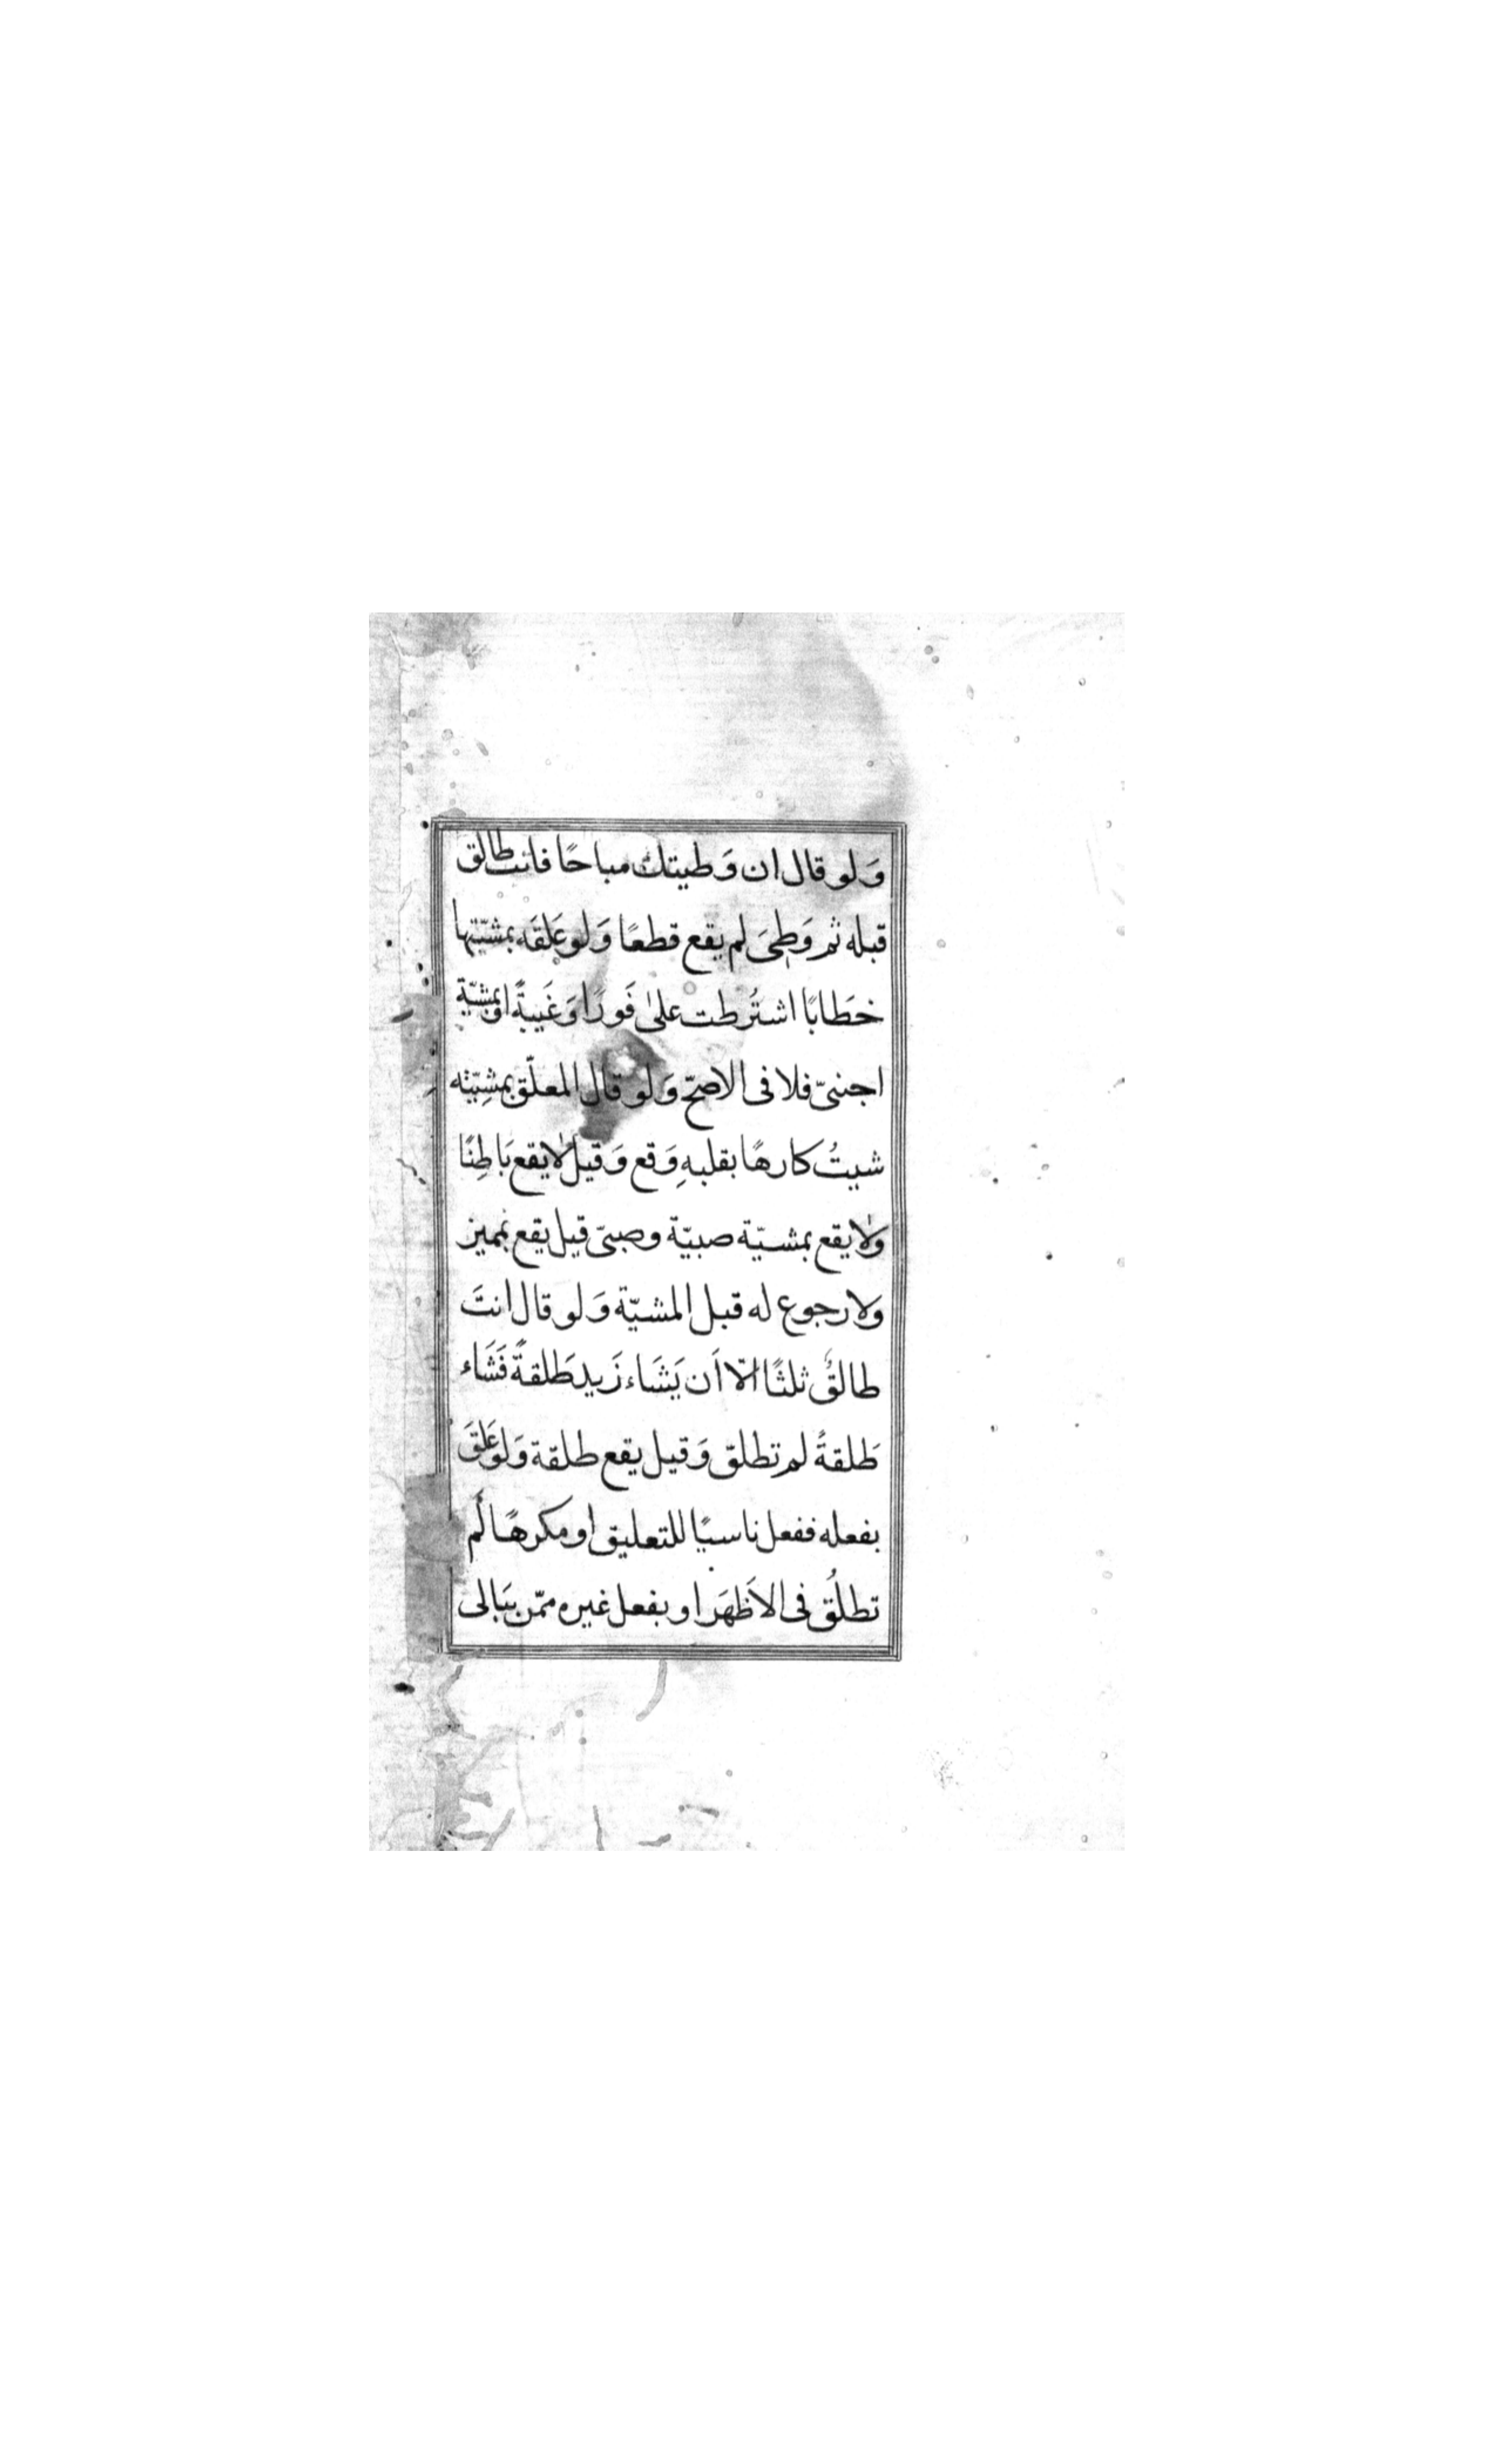 وَلو قال ان وَطيتك مباحًا فانت طالق
قبله ثم وَطِئَ لم يقع قطعًا وَلو عَلقَه بمشيّتها
خطَابًا اشتُرطت علىٰ فَورًا وَغَيبةً او بمشيّة
اجنبىّ فلا فى الاصحّ وَلو قال المعلّق بمشِيّته
شيتُ كارهًا بقلبهِ وَقع وَقيل لا يقع بَاطِنًا
ولا يقع بمشيّة صبيّة وصبىّ قيل يقع بمميز
ولا رجوع له قبل المشيّة وَلو قال انتَ
طالقٌ ثلثًا الّا اَن يَشَاء زَيد طَلقةً فَشَاء
طَلقةً لم تطلق وَقيل يقع طلقة وَلو عَلقَ
بفعله ففعل ناسيًا للتعليق او مكرهًا لَم
تطلُق فى الاَظهَر او بفعل غيره ممّن يبَالى